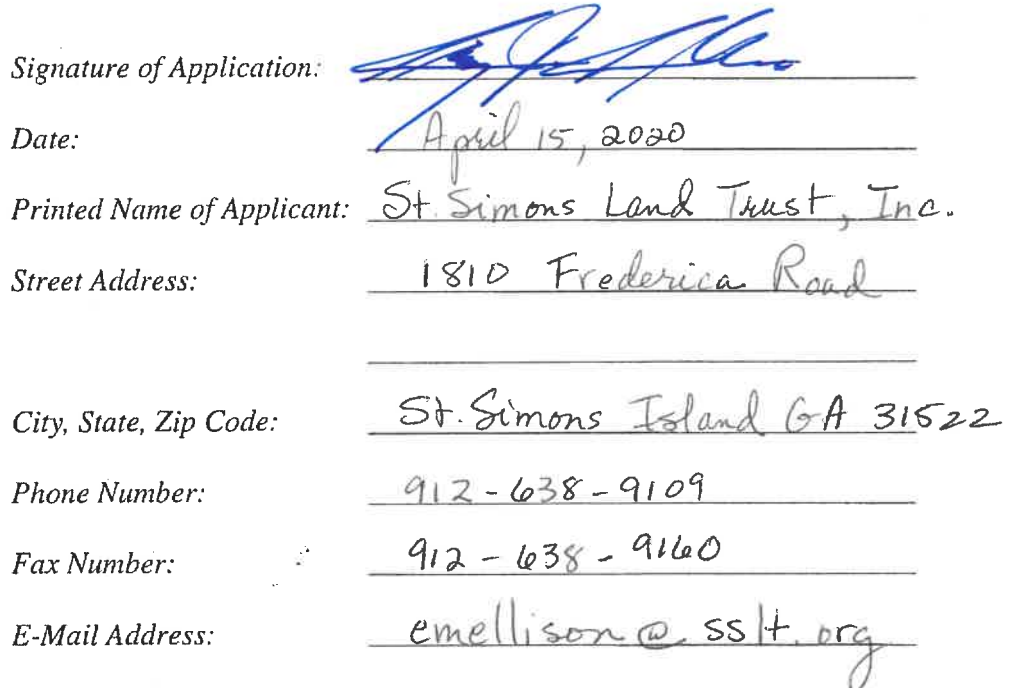 Signature of Application:
Date: April 15, 2020
Printed Name of Applicant: St. Simons Land Trust, Inc.
Street Address: 1810 Frederica Road
City, State, Zip Code: St. Simons Island GA 31522
Phone Number: 912-638-9109
Fax Number: 912-638-9160
E-Mail Address: emellison@sslt.org